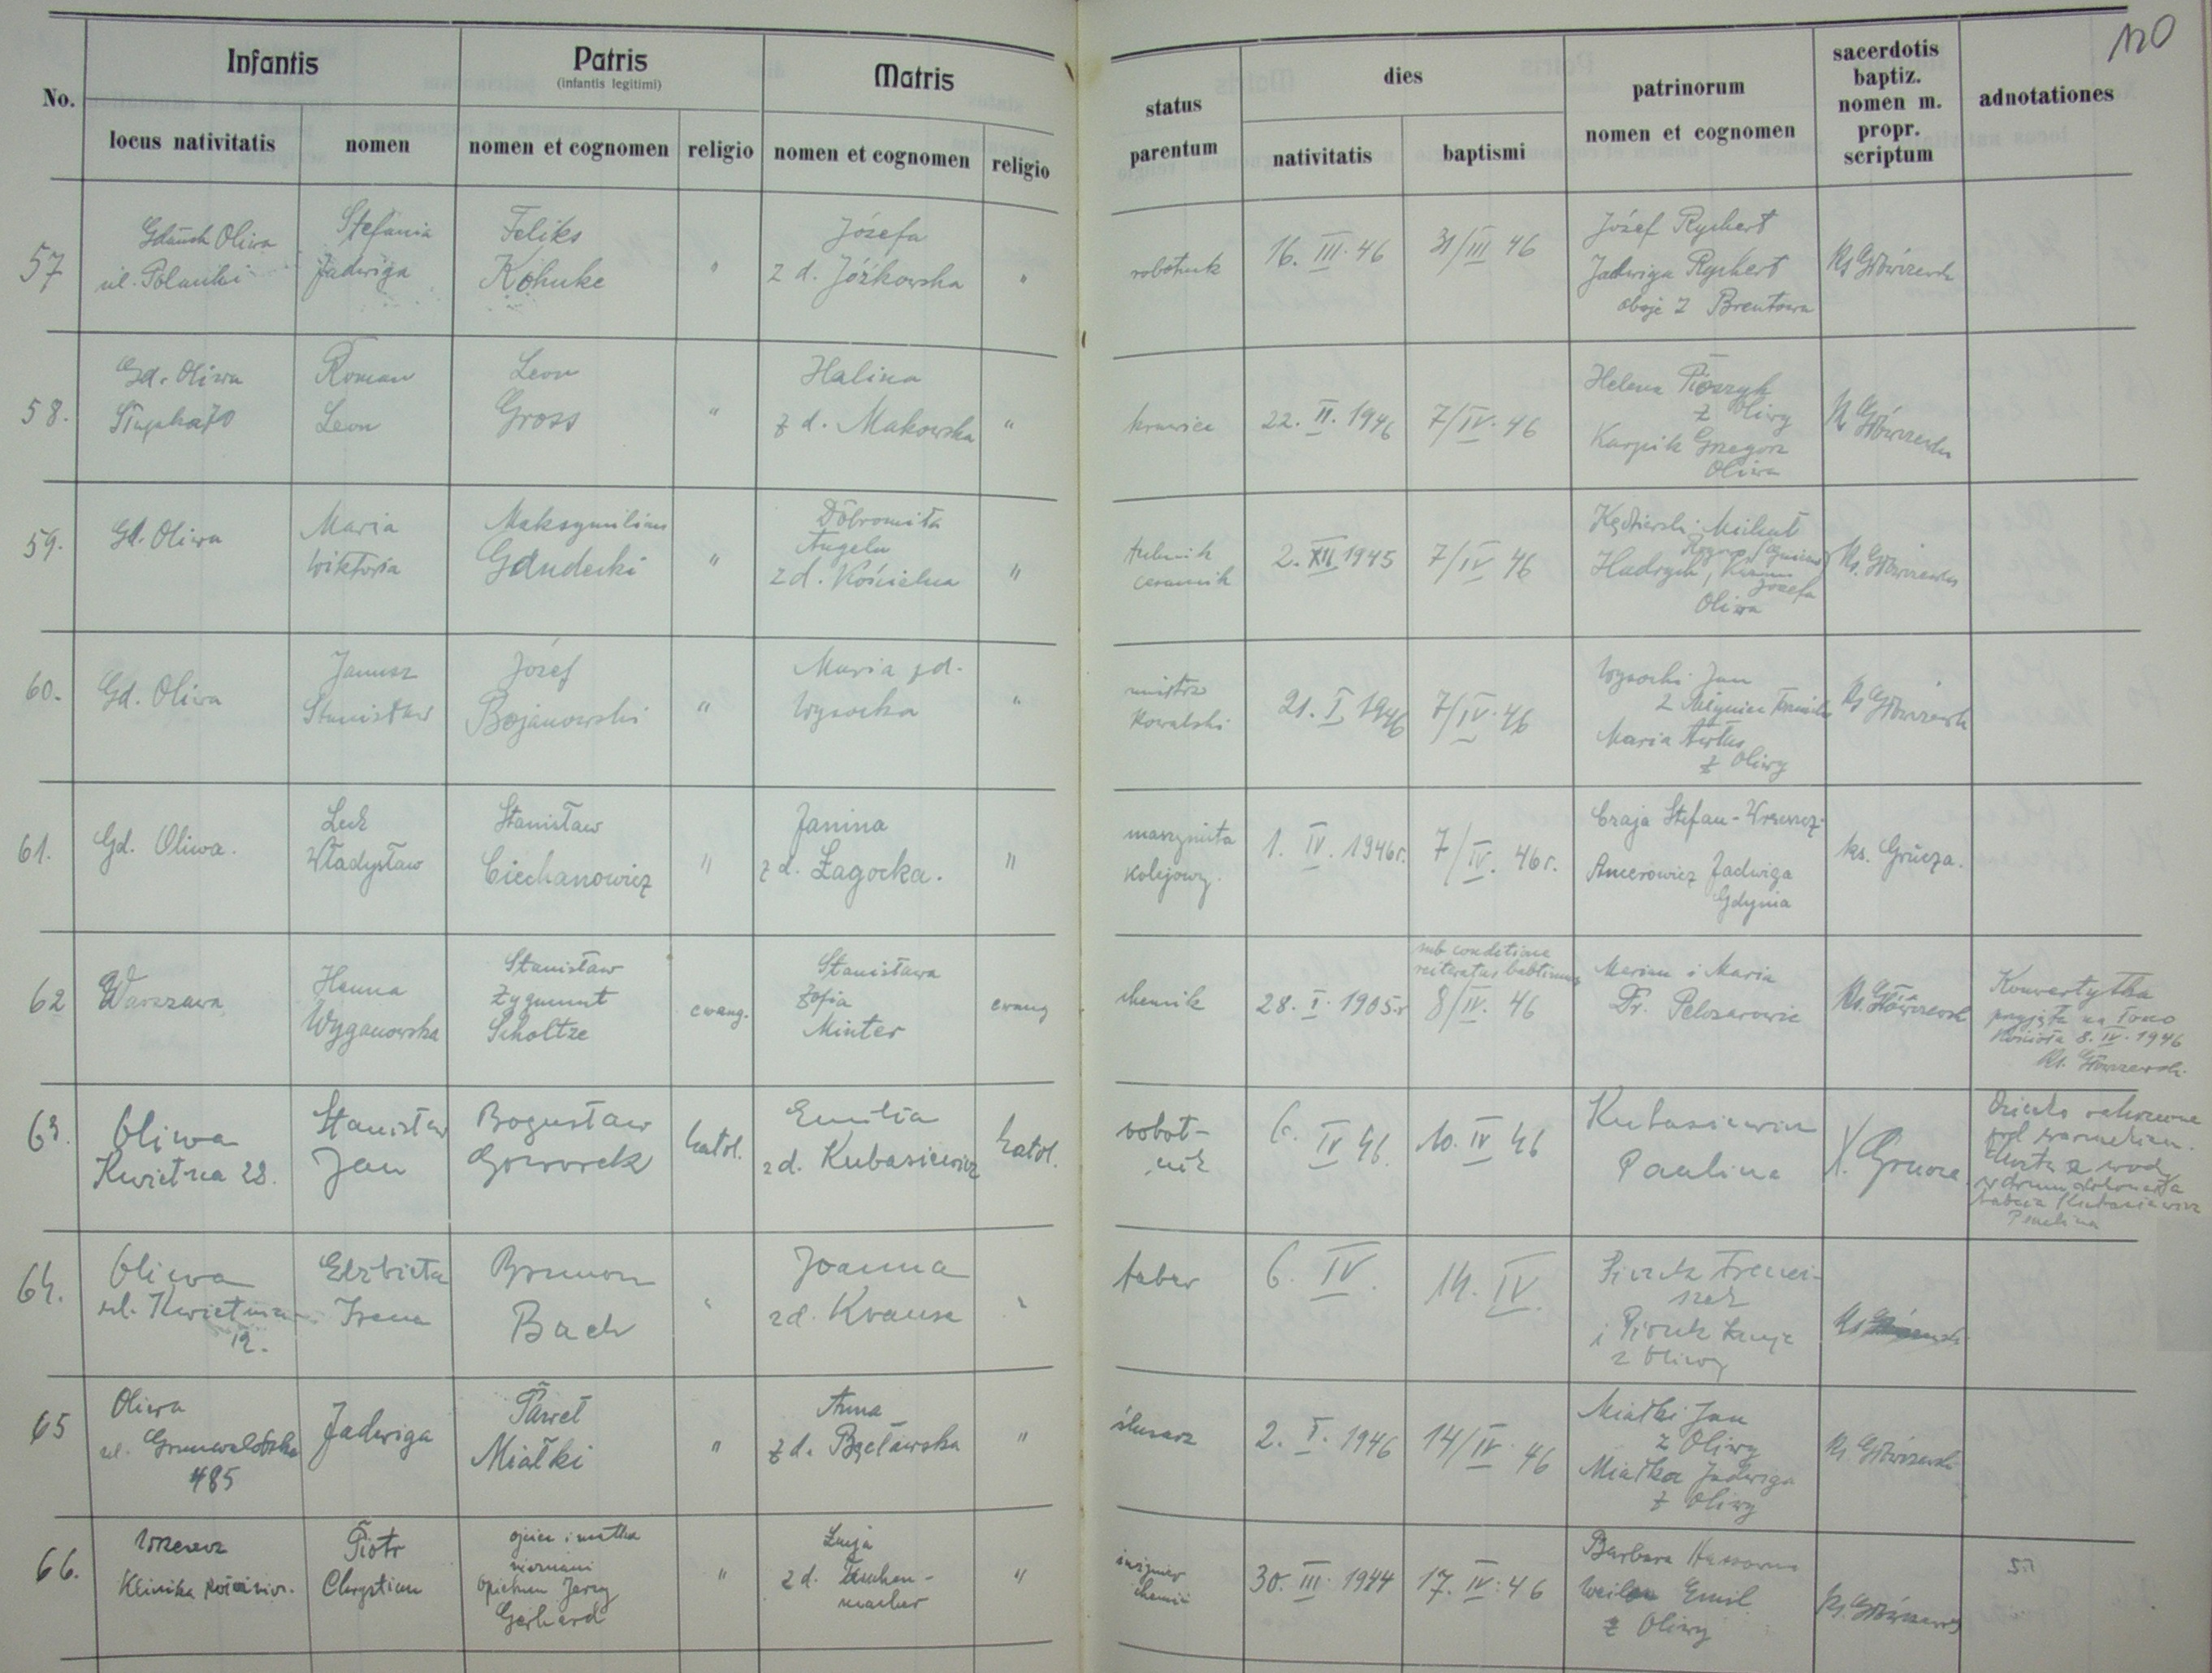 120
No.
Infantis
Patris
(infantis legitimi)
Matris
status
parentum
dies
patrinorum
nomen et cognomen
sacerdotis
baptiz.
nomen m.
propr.
scriptum
adnotationes
locus nativitatis
nomen
nomen et cognomen
religio
nomen et cognomen
religio
nativitatis
baptismi
57
Gdańsk Oliwa
ul. Polanki
Stefania
Jadwiga
Feliks
Kohnke
"
Józefa
z d. Józkowska
"
robotnik
16. III. 46
31/III 46
Józef Rychert
Jadwiga Rychert
oboje z Brentowa
Ks Główczewski
58.
Gd. Oliwa
70
Roman
Leon
Leon
Gross
"
Halina
z d. Makowska
"
krawiec
22. II. 1946
7/IV. 46
Helena
z Oliwy
Karpik Grzegorz
Oliwa
Ks Główczewski
59.
Gd. Oliwa
Maria
Wiktoria
Maksymilian
Gdudecki
"
Dobromiła
Angela
z d. Kościelna
"
technik
ceramik
2. XII 1945
7/IV 46
Kędzierski Michał
Hadrych,
Józefa
Oliwa
Ks. Główczewski
60.
Gd. Oliwa
Janusz
Stanisław
Józef
Bojanowski
"
Maria z d.
Wysocka
"
mistrz
Kowalski
21. I. 1946
7/IV. 46
Wysocki Jan
z
Maria
z Oliwy
Ks Główczewski
61.
Gd. Oliwa.
Lech
Władysław
Stanisław
Ciechanowicz
"
Janina
z d. Łagocka.
"
maszynista
kolejowy.
1. IV. 1946r.
7/IV. 46r.
Czaja Stefan - Wrzeszcz
Amerowicz Jadwiga
Gdynia
ks. Grucza.
62
Warszawa
Hanna
Wyganowska
Stanisław
Zygmunt
Scholtze
ewang.
Stanisława
Zofia
Minter
ewang
chemik
28. I. 1905.r
sub conditione
reiteratus babtismus
8/IV. 46
Marian i Maria
Dr. Pelczarowie
Ks. Główczewski
Konwertytka
przyjęta na łono
Kościoła 8. IV. 1946
Ks. Główczewski
63.
Oliwa
Kwietna 28.
Stanisław
Jan
Bogusław
Goworek
katol.
Emilia
z d. Kubasiewicz
katol.
robot-
nik
6. IV 46.
10. IV 46
Kubasiewicz
Paulina
X. Grucza.
Dziecko ochrzczone
pod warunkiem.
Chrztu z wody
w domu dokonała
babcia Kubasiewicz
Paulina
64.
Oliwa
ul. Kwietna
12.
Elżbieta
Irena
Brunon
Bach
"
Joanna
z d. Krause
"
6. IV.
14. IV.
szek
z Oliwy
Ks
65
Oliwa
ul. Grunwaldzka
485
Jadwiga
Paweł
Miałki
"
Anna
z d. Bęcławska
"
ślusarz
2. I. 1946
14/IV. 46
Miałki Jan
z Oliwy
Miałka Jadwiga
z Oliwy
Ks Główczewski
66.
Wrzeszcz
Klinika położnicz.
Piotr
Chrystian
ojciec i matka
nieznani
opiekun Jerzy
Gerhard
"
Łucja
z d.
"
inżynier
chemii
30. III. 1944
17. IV. 46
Barbara
Emil
z Oliwy
Ks. Główczewski